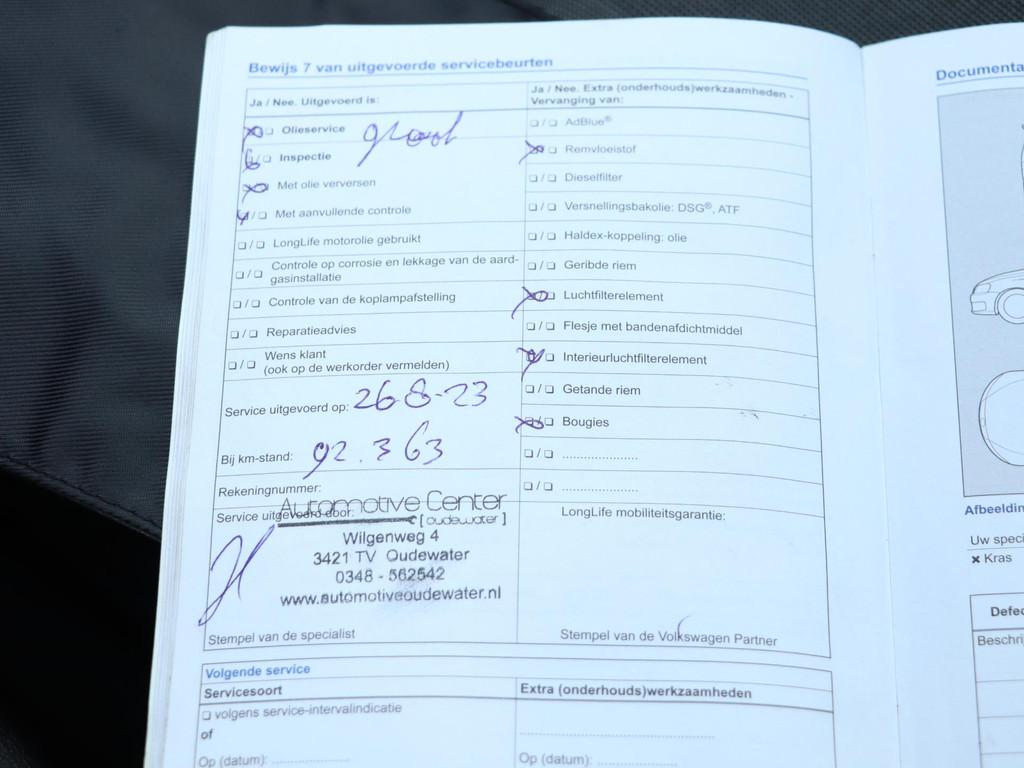 Bewijs 7 van uitgevoerde servicebeurten
Ja / Nee. Uitgevoerd is:
Olieservice
groot
Inspectie
Met olie verversen
Met aanvullende controle
LongLife motorolie gebruikt
Controle op corrosie en lekkage van de aard-
gasinstallatie
Controle van de koplampafstelling
Reparatieadvies
Wens klant
(ook op de werkorder vermelden)
Service uitgevoerd op: 26-8-23
Bij km-stand: 92.363
Rekeningnummer:
Service uitgevoerd door:
Automotive Center
[oudewater]
Wilgenweg 4
3421 TV Oudewater
0348 - 562542
www.automotiveoudewater.nl
Stempel van de specialist
Ja / Nee. Extra (onderhouds)werkzaamheden -
Vervanging van:
AdBlue®
Remvloeistof
Dieselfilter
Versnellingsbakolie: DSG®, ATF
Haldex-koppeling: olie
Geribde riem
Luchtfilterelement
Flesje met bandenafdichtmiddel
Interieurluchtfilterelement
Getande riem
Bougies
LongLife mobiliteitsgarantie:
Stempel van de Volkswagen Partner
Volgende service
Servicesoort
volgens service-intervalindicatie
of
Op (datum):
Extra (onderhouds)werkzaamheden
Op (datum):
Documenta
Afbeeldin
Uw speci
x Kras
Defec
Beschri